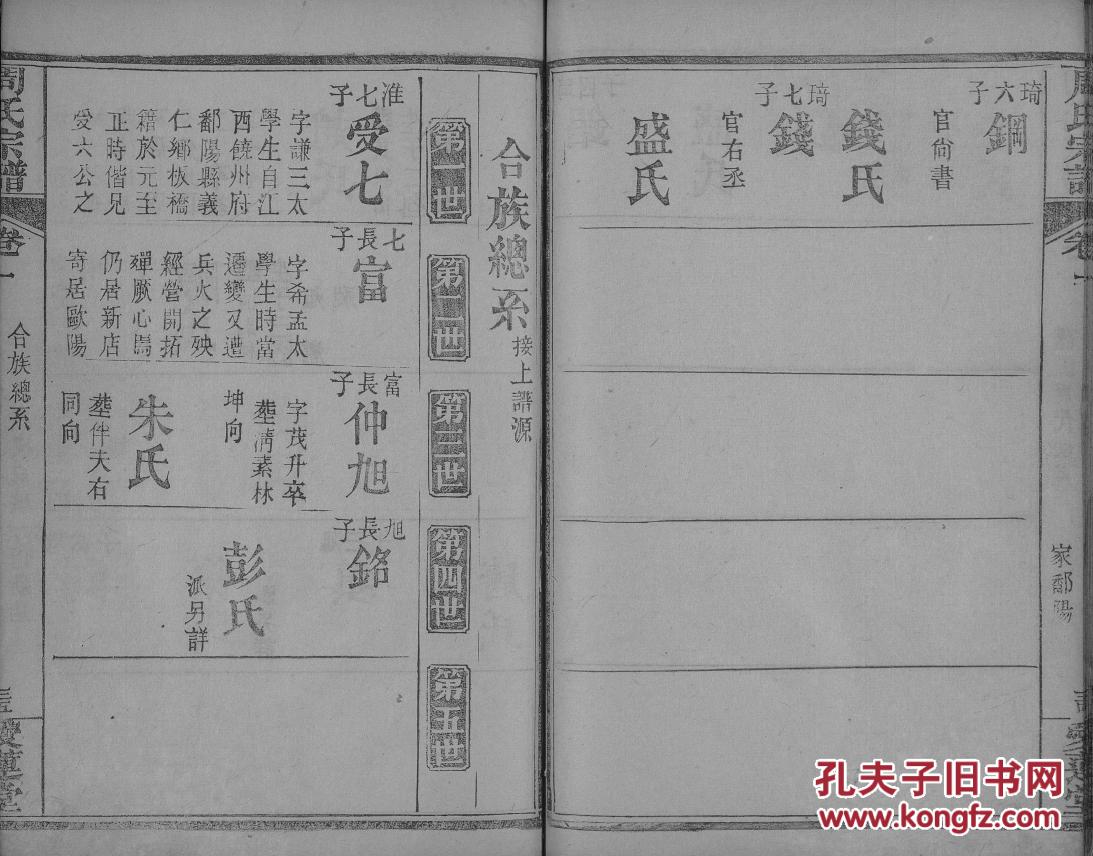 卷一
家鄱陽
琦六子
鋼
官尙書
錢氏
琦七子
錢
官右丞
盛氏
合族總系
接上譜源
第一世
第二世
第三世
第四世
第五世
淮七子
受七
字謙三太
學生自江
西饒州府
鄱陽縣義
仁鄉板橋
籍於元至
正時偕兄
受六公之
七長子
富
字希孟太
學生時當
遷變又遭
兵火之殃
經營開拓
殫厥心焉
仍居新店
寄居歐陽
富長子
仲旭
字茂升卒
塟淸素林
坤向
朱氏
塟伴夫右
同向
旭長子
銘
彭氏
派另詳
周氏宗譜
卷一
合族總系
愛蓮堂
孔夫子旧书网
www.kongfz.com